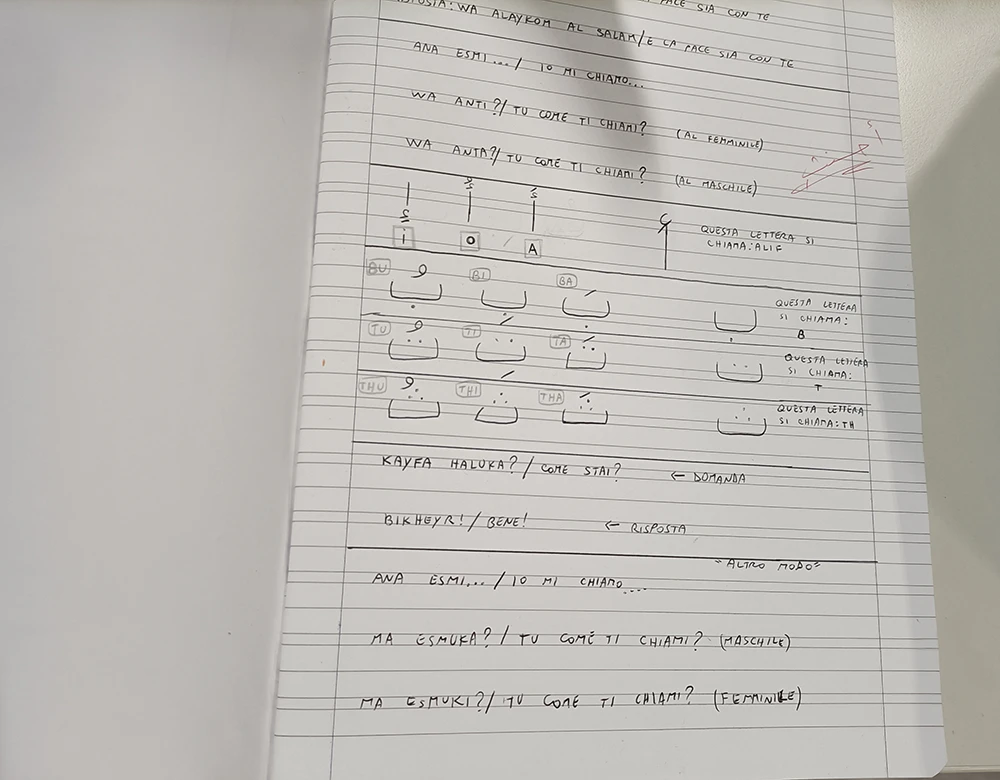 PACE SIA CON TE
RISPOSTA: WA ALAYKOM AL SALAM/E LA PACE SIA CON TE
ANA ESMI.../ IO MI CHIAMO...
WA ANTI?/ TU COME TI CHIAMI? (AL FEMMINILE)
WA ANTA?/ TU COME TI CHIAMI? (AL MASCHILE)
i O / A QUESTA LETTERA SI
CHIAMA: ALIF
BU BI BA QUESTA LETTERA
SI CHIAMA:
B
TU TI TA QUESTA LETTERA
SI CHIAMA:
T
THU THI THA QUESTA LETTERA
SI CHIAMA: TH
KAYFA HALUKA? / COME STAI? ← DOMANDA
BIKHEYR! / BENE! ← RISPOSTA
"ALTRO MODO"
ANA ESMI... / IO MI CHIAMO....
MA ESMUKA? / TU COME TI CHIAMI? (MASCHILE)
MA ESMUKI?/ TU COME TI CHIAMI? (FEMMINILE)